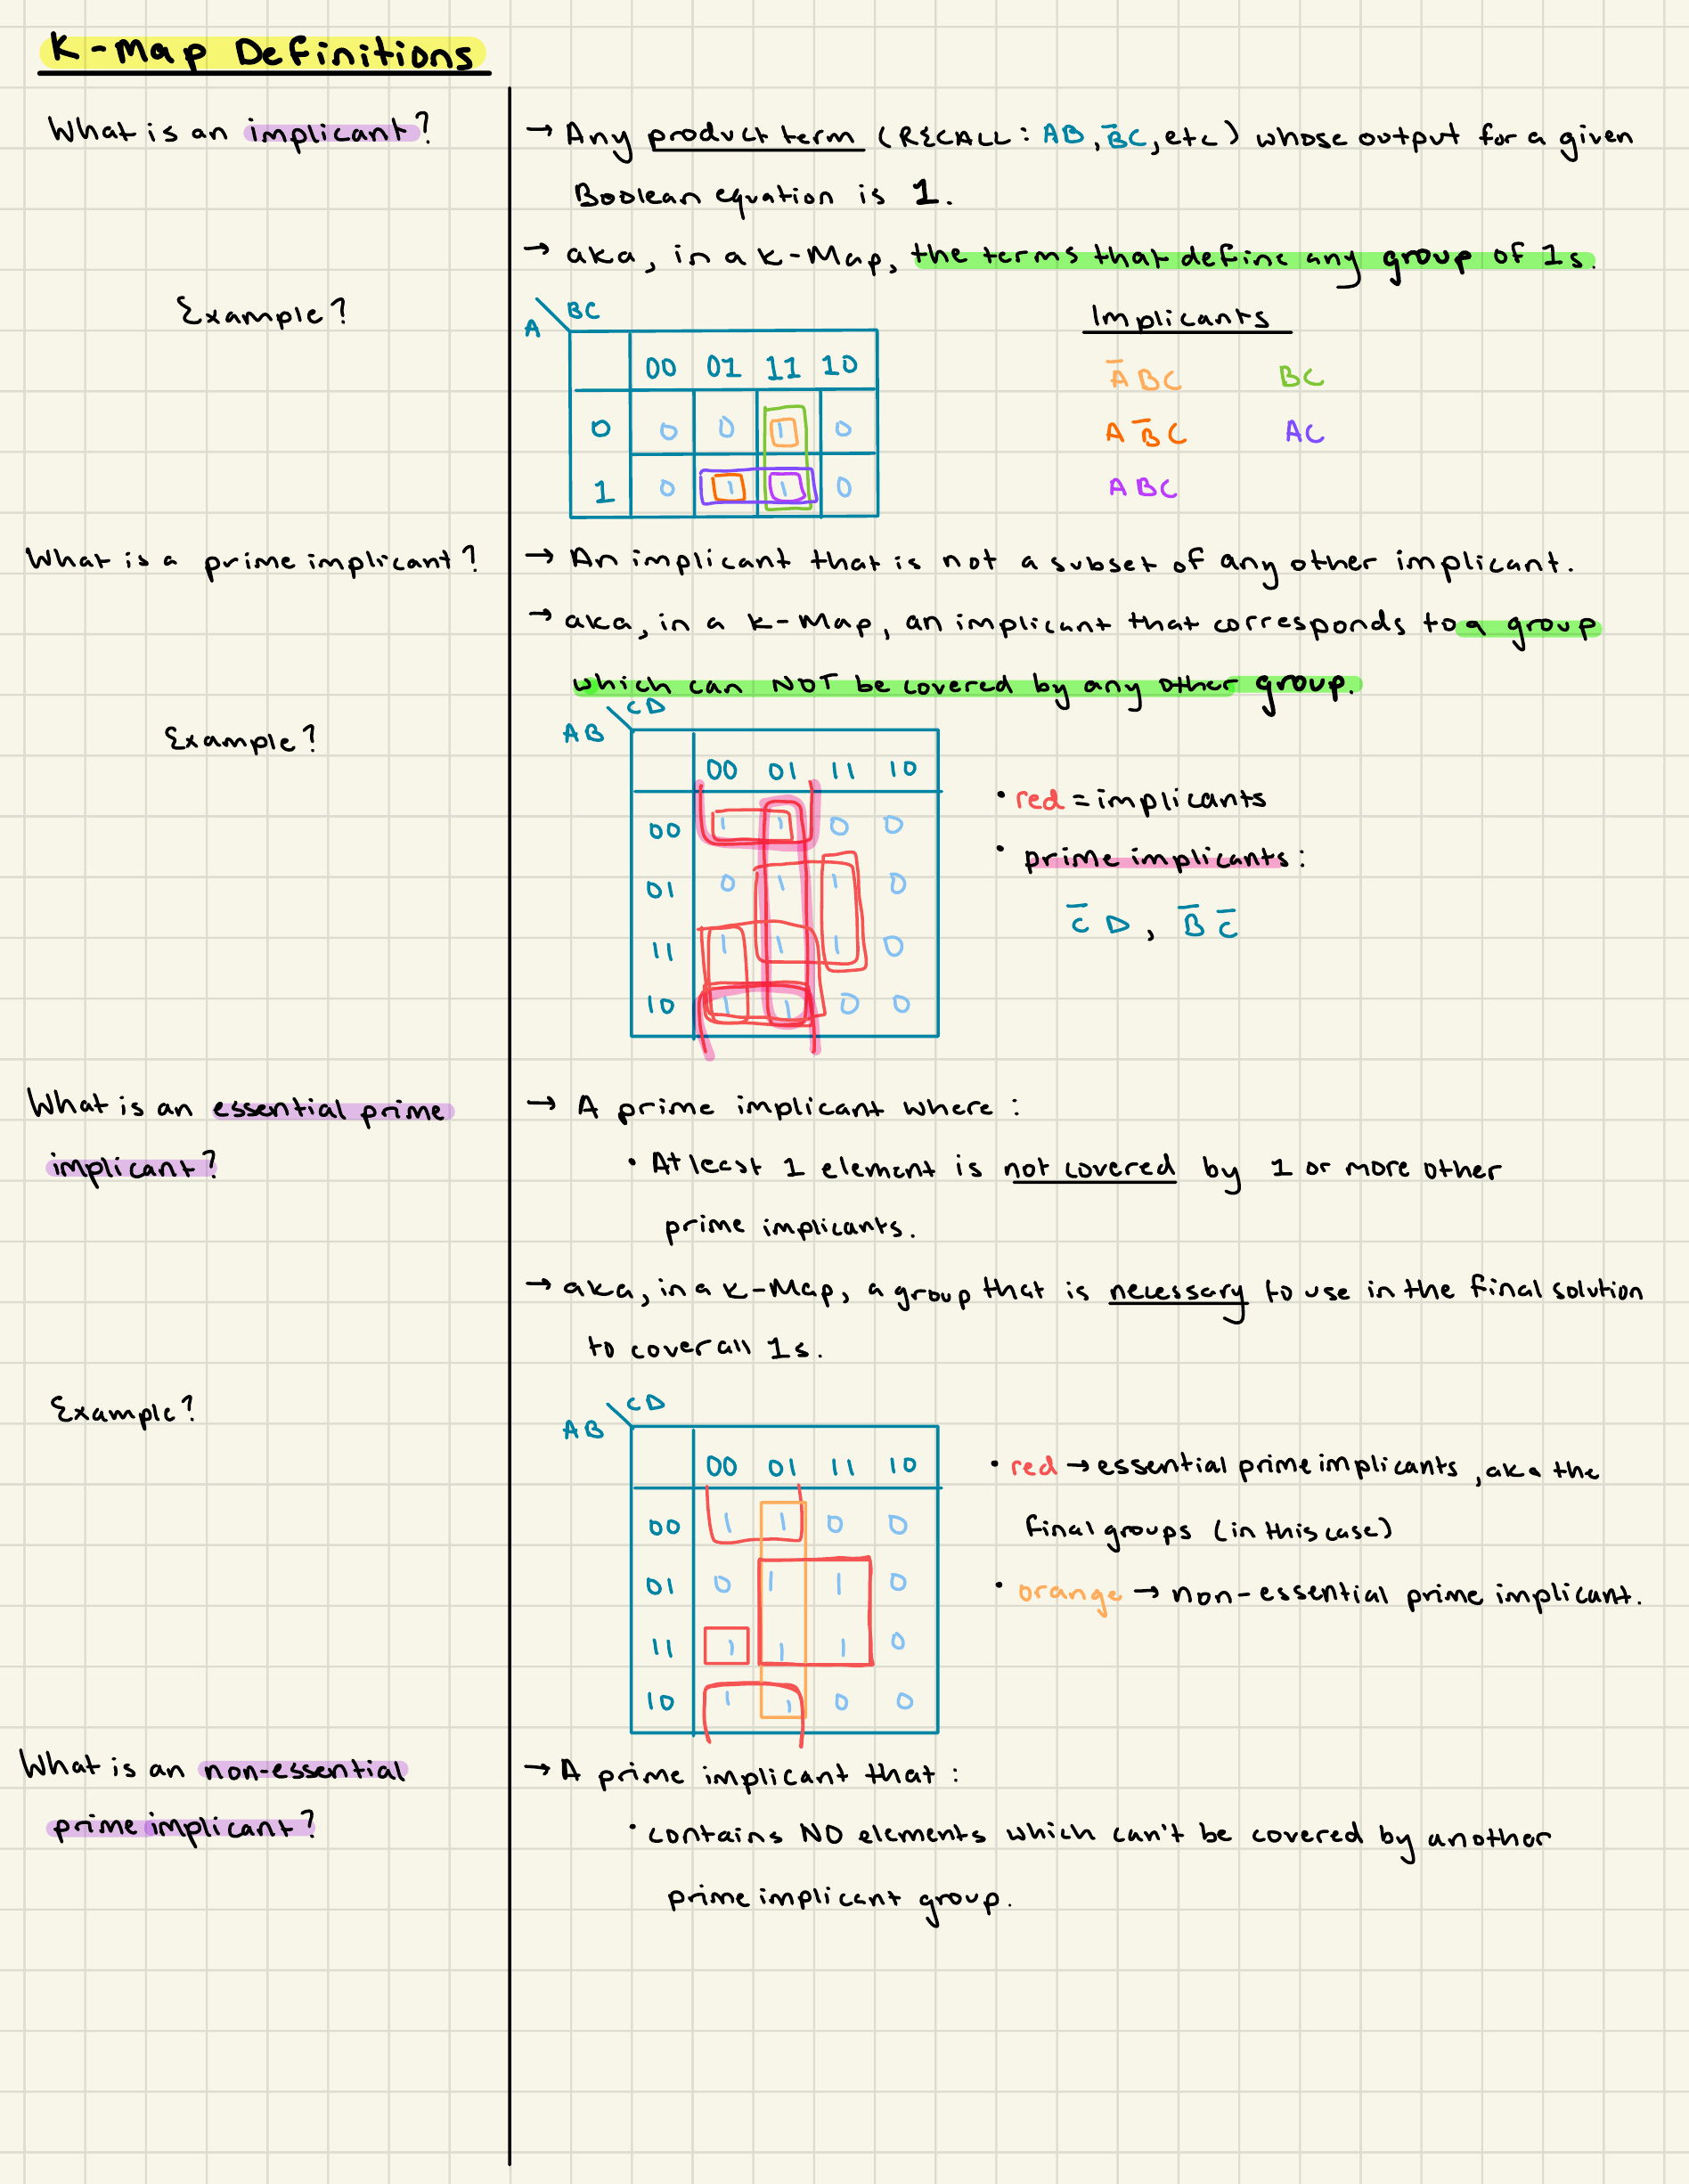 K-Map Definitions
What is an implicant?
→ Any product term (RECALL: AB, B̅C, etc) whose output for a given
Boolean equation is 1.
→ aka, in a K-Map, the terms that define any group of 1s.
Example?
A \ BC
00 01 11 10
0 0 0 1 0
1 0 1 1 0
Implicants
A̅BC BC
AB̅C AC
ABC
What is a prime implicant?
→ An implicant that is not a subset of any other implicant.
→ aka, in a K-Map, an implicant that corresponds to a group
which can NOT be covered by any other group.
Example?
AB \ CD
00 01 11 10
00 1 1 0 0
01 0 1 1 0
11 1 1 1 0
10 1 1 0 0
• red = implicants
• prime implicants:
C̅D, B̅C̅
What is an essential prime
implicant?
→ A prime implicant where:
• At least 1 element is not covered by 1 or more other
prime implicants.
→ aka, in a K-Map, a group that is necessary to use in the final solution
to cover all 1s.
Example?
AB \ CD
00 01 11 10
00 1 1 0 0
01 0 1 1 0
11 1 1 1 0
10 1 1 0 0
• red → essential prime implicants, aka the
final groups (in this case)
• orange → non-essential prime implicant.
What is an non-essential
prime implicant?
→ A prime implicant that:
• contains NO elements which can't be covered by another
prime implicant group.